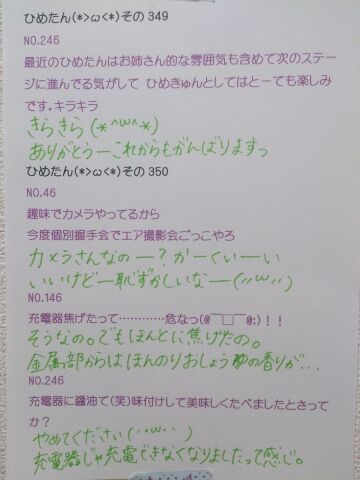 ひめたん(*>ω<*)その349
NO.246
最近のひめたんはお姉さん的な雰囲気も含めて次のステー
ジに進んでる気がして ひめきゅんとしてはとーても楽しみ
です。キラキラ
きらきら(*^ω^*)
ありがとうーこれからもがんばりますっ
ひめたん(*>ω<*)その350
NO.46
趣味でカメラやってるから
今度個別握手会でエア撮影会ごっこやろ
カメラさんなのー?かーくいーい
いいけどー恥ずかしいなー(''ω'')
NO.146
充電器焦げたって…………危なっ(@￣□￣@;)!!
そうなの。でもほんとに焦げたの。
金属部からはほんのりおしょうゆの香りが…
NO.246
充電器に醤油て(笑)味付けして美味しくたべましたとさって
か?
やめてください(''ω'')
充電器じゃ充電できなくなりましたって感じ。